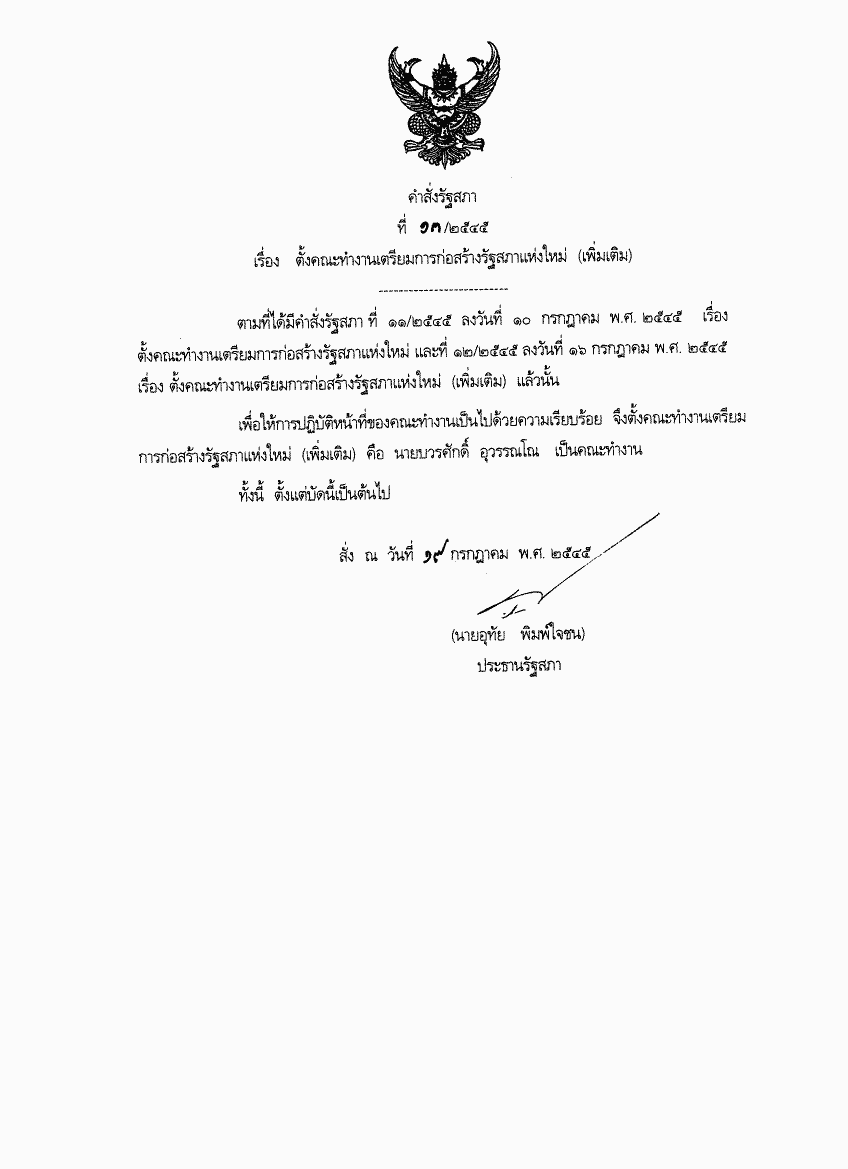 คำสั่งรัฐสภา
ที่ ๑๓/๒๕๔๕
เรื่อง ตั้งคณะทำงานเตรียมการก่อสร้างรัฐสภาแห่งใหม่ (เพิ่มเติม)
--------------------------
ตามที่ได้มีคำสั่งรัฐสภา ที่ ๑๑/๒๕๔๕ ลงวันที่ ๑๐ กรกฎาคม พ.ศ. ๒๕๔๕ เรื่อง
ตั้งคณะทำงานเตรียมการก่อสร้างรัฐสภาแห่งใหม่ และที่ ๑๒/๒๕๔๕ ลงวันที่ ๑๖ กรกฎาคม พ.ศ. ๒๕๔๕
เรื่อง ตั้งคณะทำงานเตรียมการก่อสร้างรัฐสภาแห่งใหม่ (เพิ่มเติม) แล้วนั้น
เพื่อให้การปฏิบัติหน้าที่ของคณะทำงานเป็นไปด้วยความเรียบร้อย จึงตั้งคณะทำงานเตรียม
การก่อสร้างรัฐสภาแห่งใหม่ (เพิ่มเติม) คือ นายบวรศักดิ์ อุวรรณโณ เป็นคณะทำงาน
ทั้งนี้ ตั้งแต่บัดนี้เป็นต้นไป
สั่ง ณ วันที่ ๑๙ กรกฎาคม พ.ศ. ๒๕๔๕
(นายอุทัย พิมพ์ใจชน)
ประธานรัฐสภา